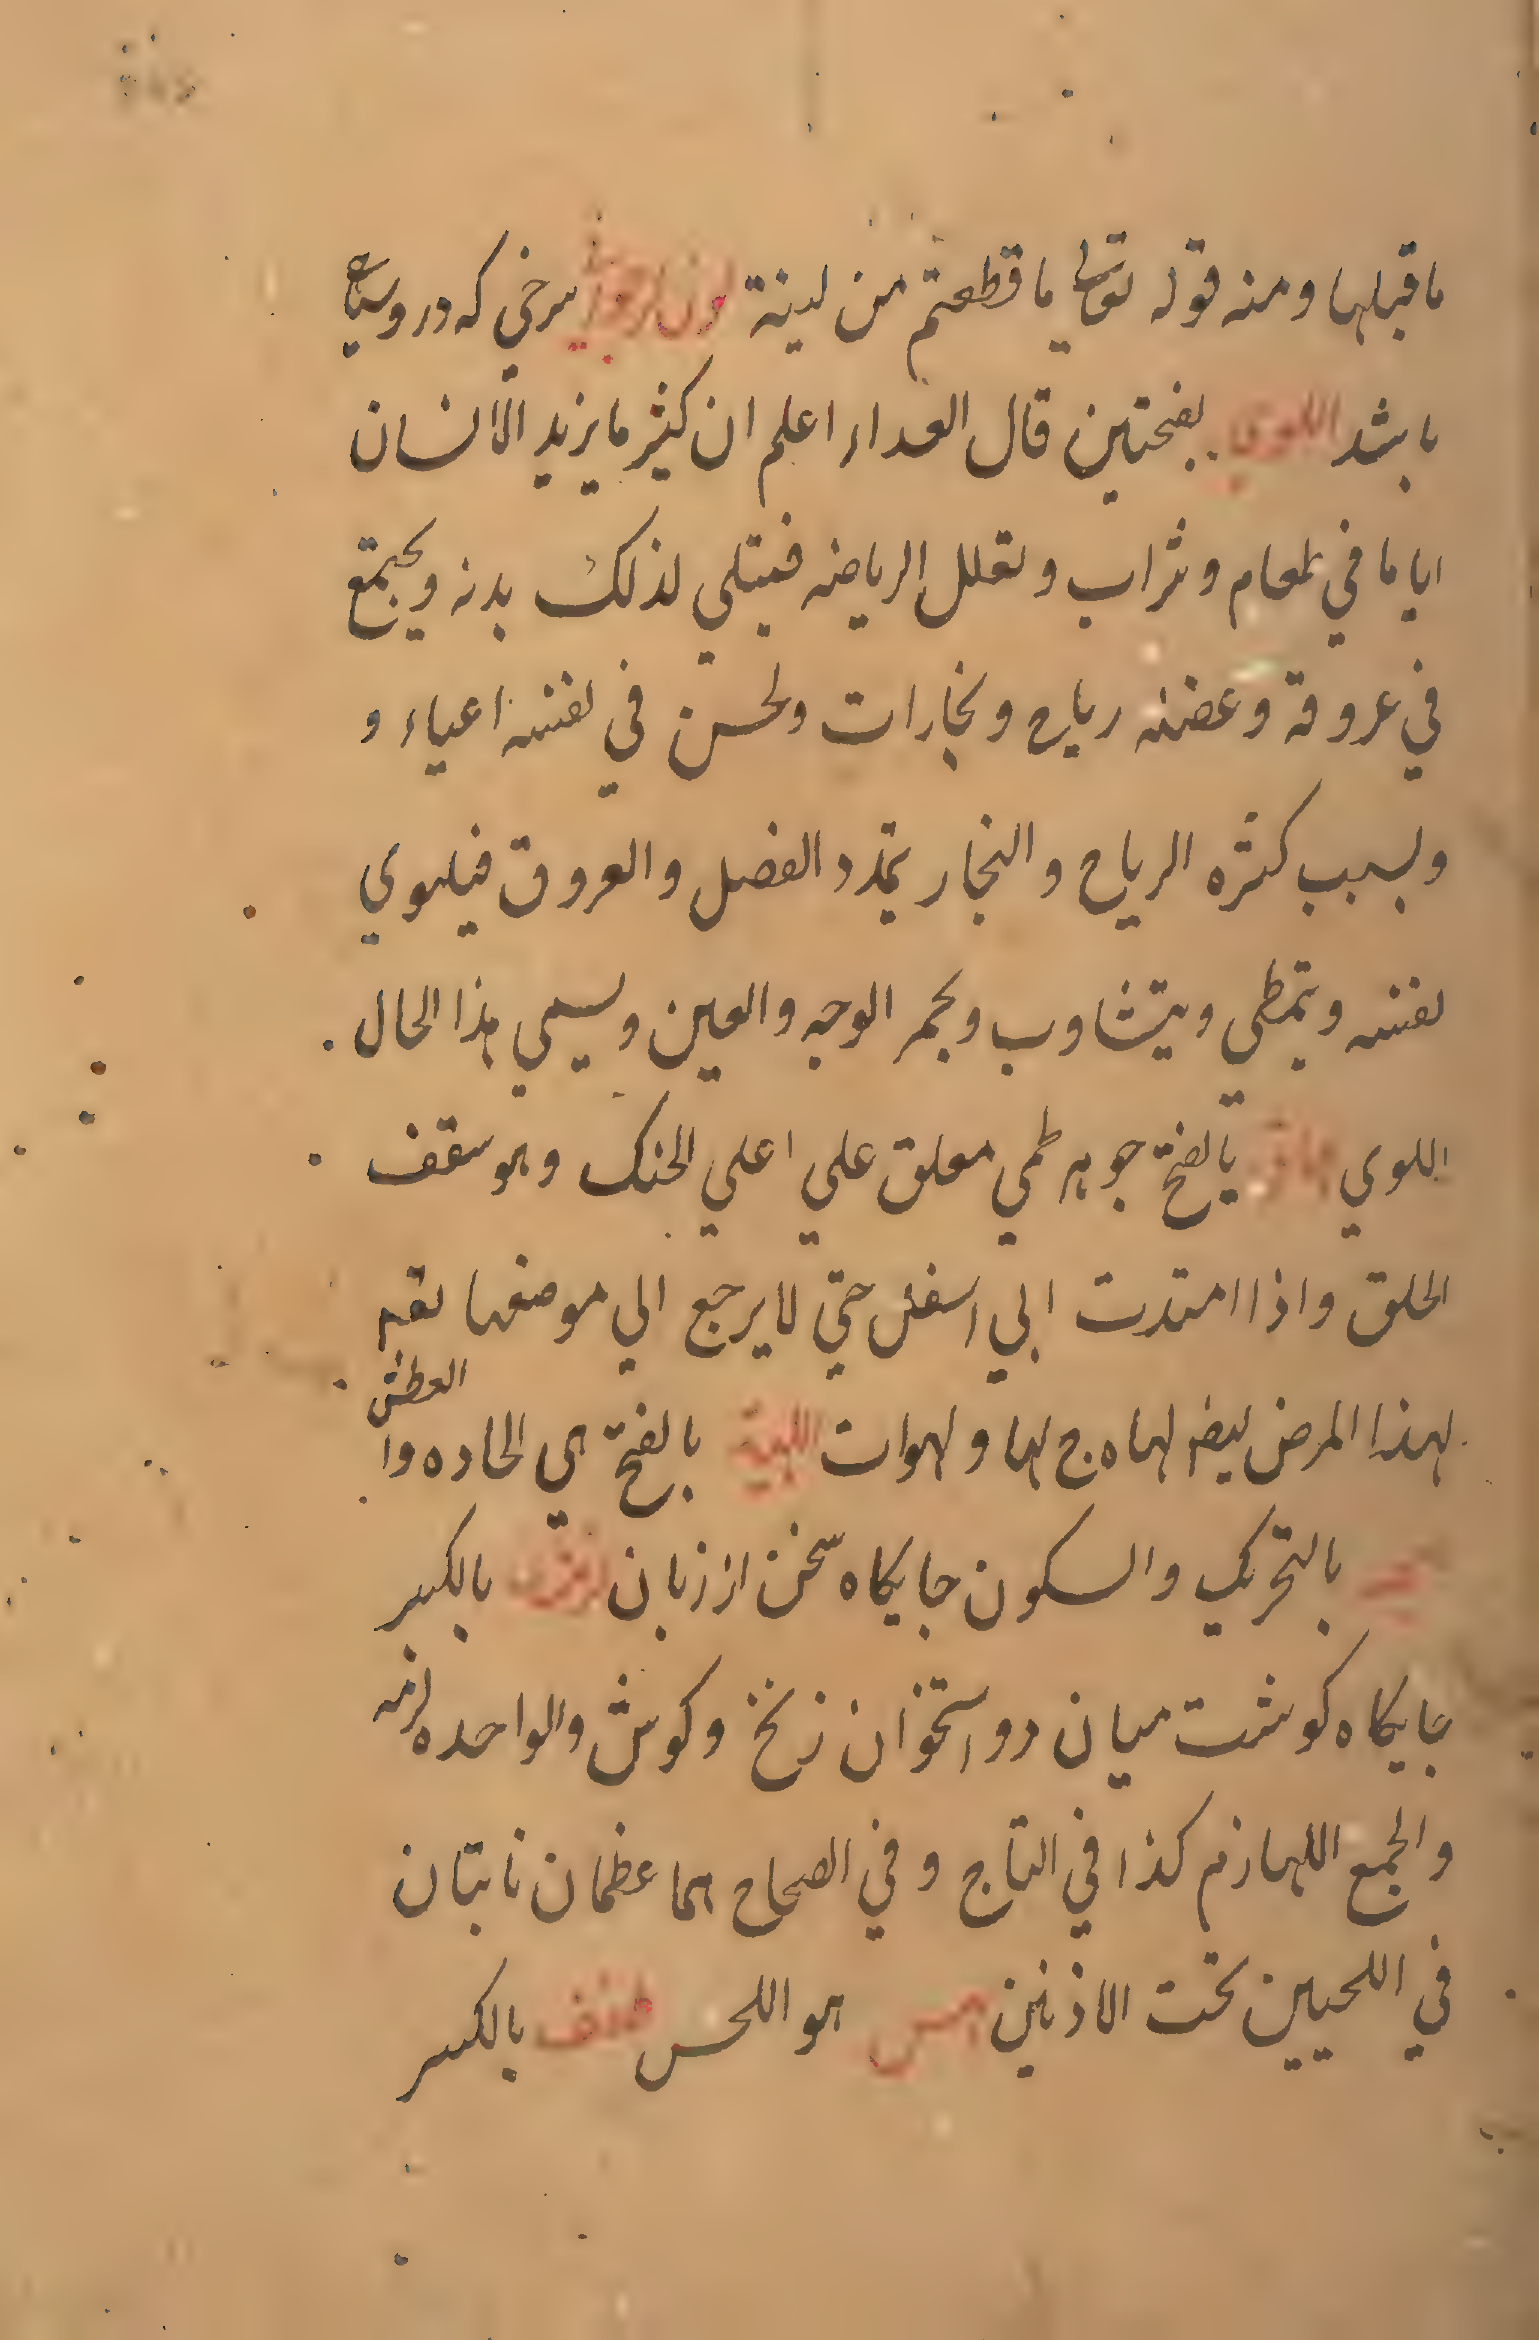 ما قبلها ومنه قوله تعالى ما قطعتم من لينة سرخي كه در وسياه
باشد اللوي بفتحتين قال العداء اعلم ان كثير ما يزيد الانسان
اياما في طعام وشراب وتقلل الرياضه فيمتلي لذلك بدنه ويجتمع
في عروقة وعضله رياح وبخارات ويحس في نفسه اعياء و
وبسبب كثره الرياح والبخار يتمدد العضل والعروق فيلوي
نفسه ويتمطى ويتثاوب ويحمر الوجه والعين ويسمي هذا الحال
اللوي بالفتح جوهر لحمي معلق علي اعلي الحنك وهو سقف
الحلق واذا امتدت الي اسفل حتي لا يرجع الي موضعها يقم
لهذا المرض ايضا لهاه ج لها ولهوات بالفتح هي الحاده وا العطش
بالتحريك والسكون جايكاه سخن از زبان بالكسر
جايكاه كوشت ميان دو استخوان زنخ وكوش والواحده لهزمه
والجمع اللهازم كذا في التاج وفي الصحاح هما عظمان ناتئان
في اللحيين تحت الاذنين هو اللحس بالكسر